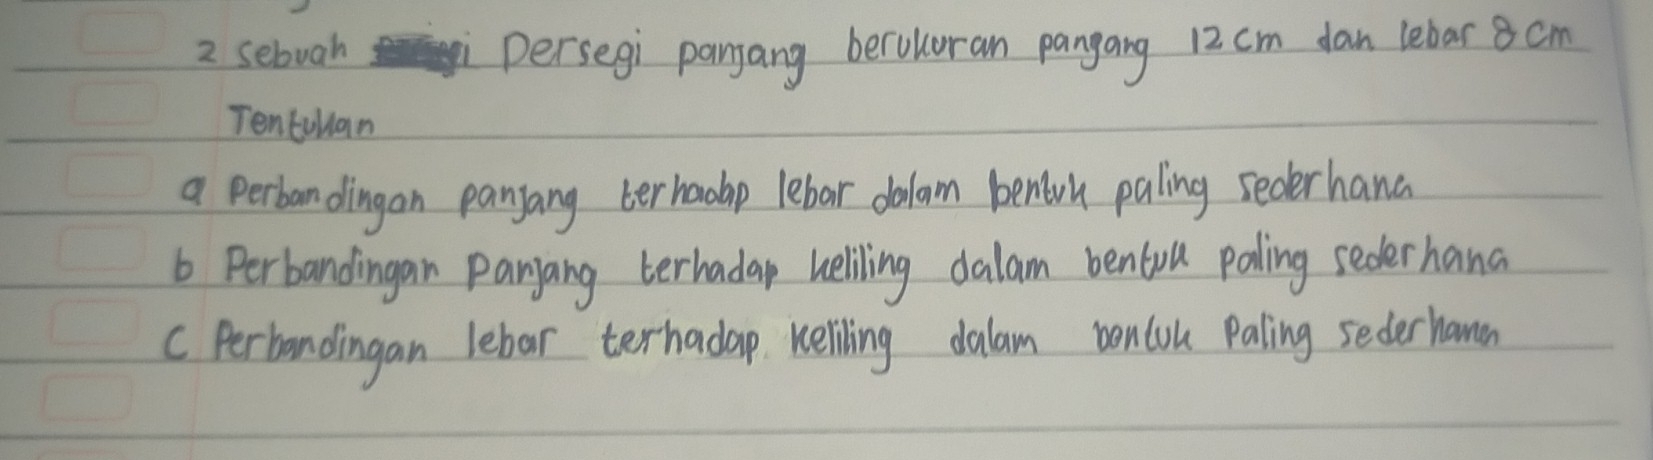 2 sebuah Persegi panjang berukuran pangang 12 cm dan lebar 8 cm
Tentukan
a Perbandingan panjang terhadap lebar dalam bentuk paling sederhana
b Perbandingan Panjang terhadap keliling dalam bentuk paling sederhana
c Perbandingan lebar terhadap keliling dalam bentuk Paling sederhana